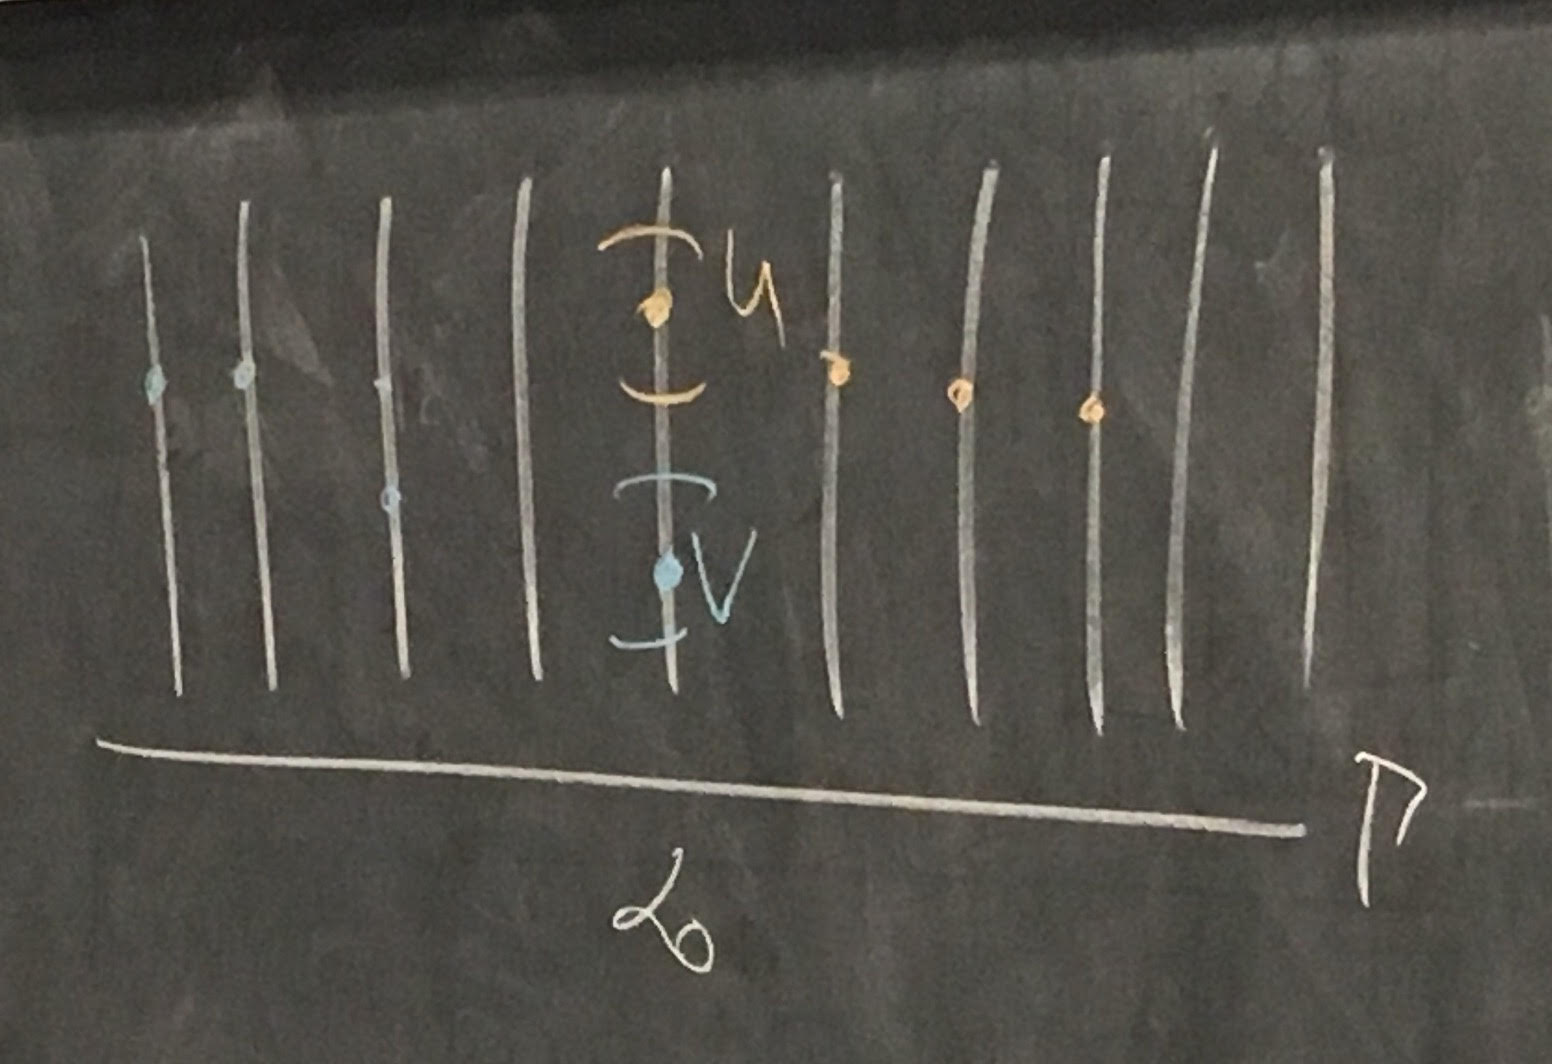 U
V
Γ
α₀